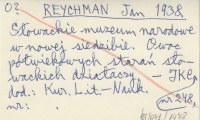 02 REYCHMAN Jan 1938.
Słowackie muzeum narodowe
w nowej siedzibie. Owoc
półwiekowych starań sło-
wackich działaczy. – IKC,
dod.: Kur. Lit-Nauk.
nr: nr 248,